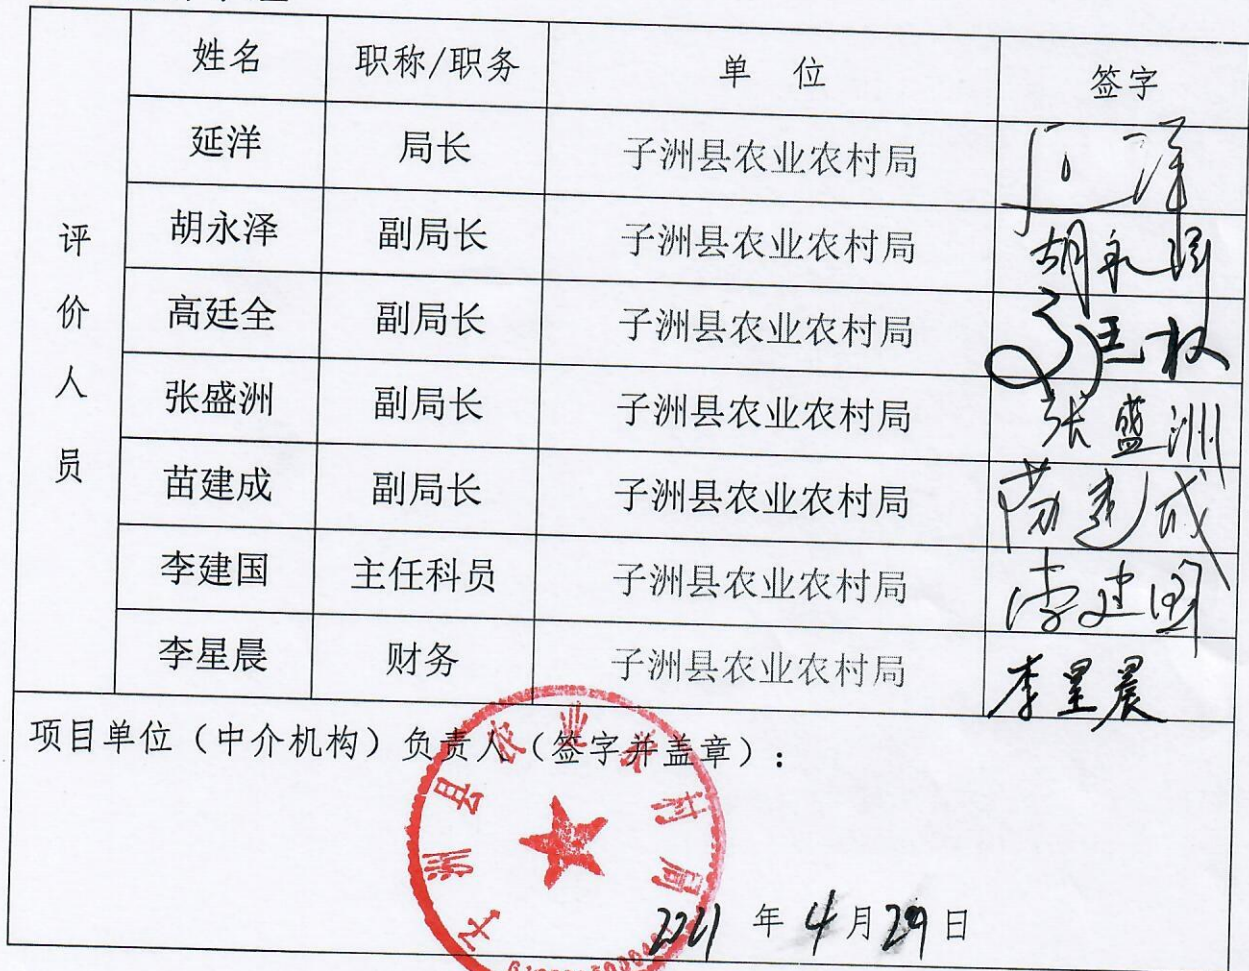 姓名 职称/职务 单 位 签字
延洋 局长 子洲县农业农村局 延洋
胡永泽 副局长 子洲县农业农村局 胡永泽
高廷全 副局长 子洲县农业农村局 高廷权
张盛洲 副局长 子洲县农业农村局 张盛洲
苗建成 副局长 子洲县农业农村局 苗建成
李建国 主任科员 子洲县农业农村局 李建国
李星晨 财务 子洲县农业农村局 李星晨
评价人员
项目单位（中介机构）负责人（签字并盖章）：
子洲县农业农村局
2021 年 4 月 29 日